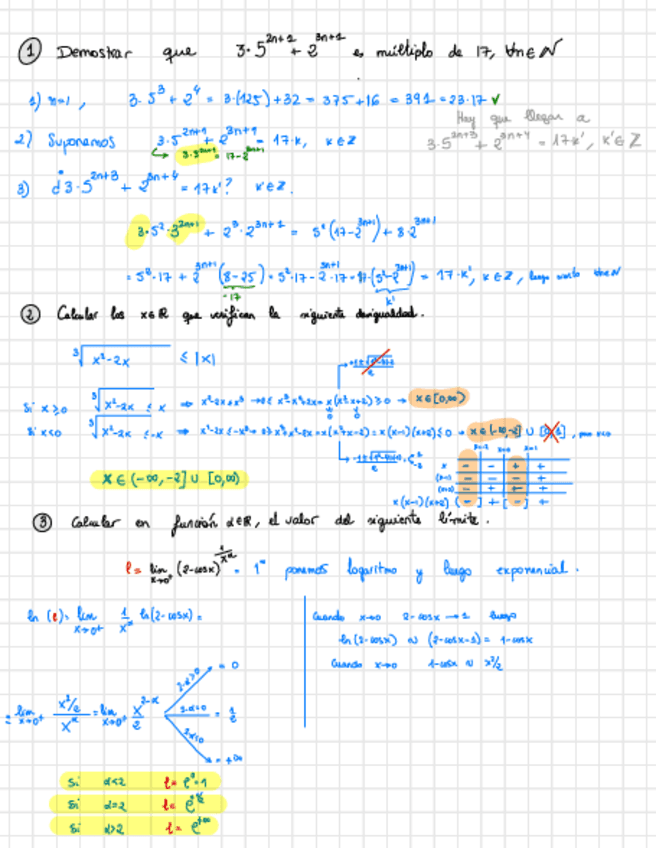 ① Demostrar que 3·5^{2n+1} + 2^{3n+1} es múltiplo de 17, ∀n∈ℕ
1) n=1, 3·5³ + 2⁴ = 3·(125)+32 = 375+16 = 391 = 23·17 ✓
Hay que llegar a
2) Suponemos 3·5^{2n+1} + 2^{3n+1} = 17·k, k∈ℤ
3·5^{2n+3} + 2^{3n+4} = 17k', k'∈ℤ
↳ 3·5^{2n+1} = 17-2^{3n+1}
3) ¿3·5^{2n+3} + 2^{3n+4} = 17k'? k'∈ℤ.
3·5²·5^{2n+1} + 2³·2^{3n+1} = 5²(17-2^{3n+1}) + 8·2^{3n+1}
= 5²·17 + 2^{3n+1}(8-25) = 5²·17 - 2^{3n+1}·17 = 17·(5²-2^{3n+1}) = 17·k', k∈ℤ, luego cierto ∀n∈ℕ
-17
k'
② Calcular los x∈ℝ que verifican la siguiente desigualdad.
∛(x²-2x) ≤ |x|
Si x≥0 ∛(x²-2x) ≤ x → x²-2x≤x³ → 0≤ x³-x²+2x = x(x²-x+2) ≥ 0 → x∈[0,∞)
Si x<0 ∛(x²-2x) ≤ -x → x²-2x ≤ -x³ → 0≥x³+x²-2x = x(x²+x-2) = x(x-1)(x+2) ≤ 0 → x∈(-∞,-2] ∪ [0,1], pues x<0
x=-2 x=0 x=1
x - - + +
(x-1) - - - +
(x+2) - + + +
x(x-1)(x+2) [-] + [-] +
x ∈ (-∞,-2] ∪ [0,∞)
③ Calcular en función α∈ℝ, el valor del siguiente límite.
l = lim x→0⁺ (2-cosx)^{1/x^α} = 1^∞ ponemos logaritmo y luego exponencial.
ln (l) = lim x→0⁺ 1/x^α ln(2-cosx) =
Cuando x→0 2-cosx → 1 luego
ln(2-cosx) ∼ (2-cosx-1) = 1-cosx
Cuando x→0 1-cosx ∼ x²/2
2-α>0 = 0
= lim x→0⁺ (x²/2)/x^α = lim x→0⁺ x^{2-α}/2 2-α=0 = 1/2
2-α<0 = +∞
Si α<2 l = e⁰ = 1
Si α=2 l = e^{1/2}
Si α>2 l = e^{+∞}